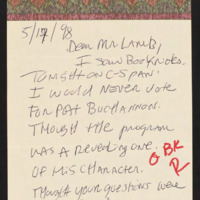 5/17/98
Dear Mr Lamb,
I saw BookNotes
TONIGHT ON C-SPAN.
I WOULD NEVER VOTE
FOR PAT BUCHANNON.
THOUGH THE PROGRAM
WAS A REVEALING ONE.
OF HIS CHARACTER.
Thought your questions were
BK
R